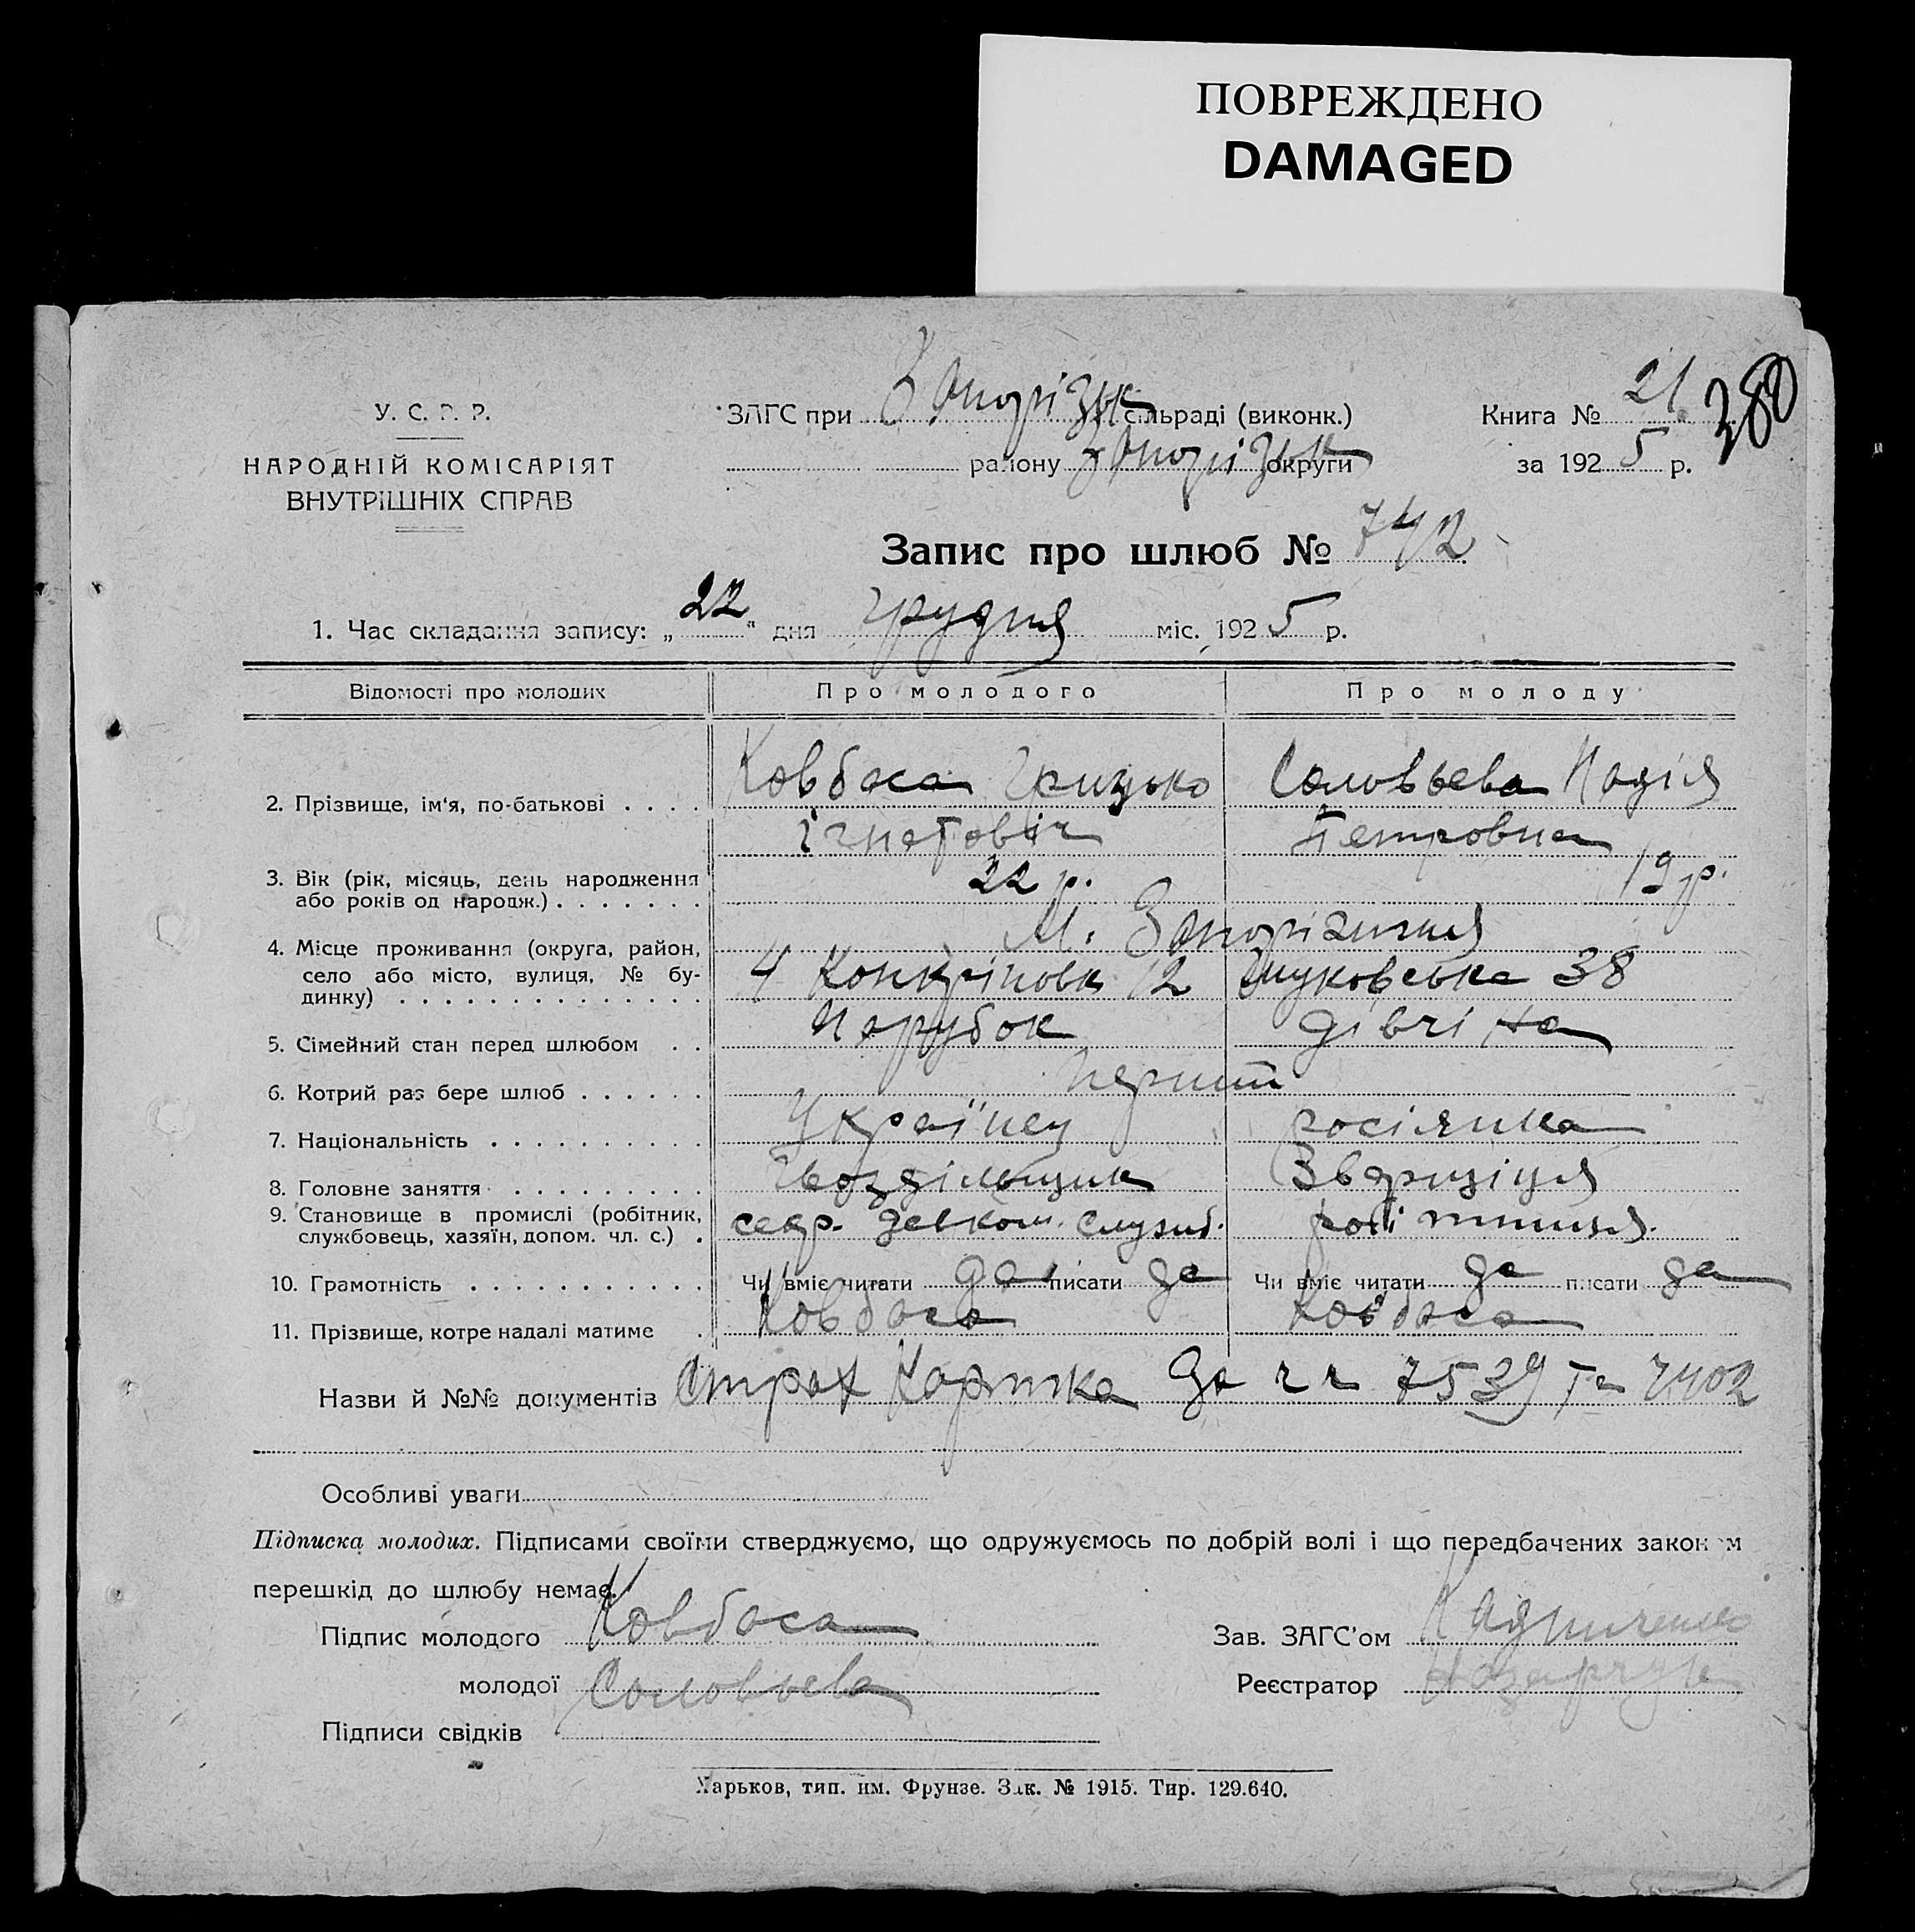 ПОВРЕЖДЕНО
DAMAGED
380
У. С. Р. Р.
НАРОДНІЙ КОМІСАРІЯТ
ВНУТРІШНІХ СПРАВ
ЗАГС при Запорізьк сільраді (виконк.)
району Запорізьк округи
Книга № 21
за 1925 р.
Запис про шлюб № 742
1. Час складання запису: „22" дня грудня міс. 1925 р.
Відомості про молодих Про молодого Про молоду
2. Прізвище, ім'я, по-батькові . . . . Ковбаса Грицько Соловьева Надія
Ігнатовіч Петровна
3. Вік (рік, місяць, день народження
або років од народж.) . . . . . . . 22 р. 19 р.
4. Місце проживання (округа, район,
село або місто, вулиця, № бу-
динку) . . . . . . . . . . . . . .
М. Запоріжжя
4 12 Жуковська 38
5. Сімейний стан перед шлюбом . . Парубок дівчіна
6. Котрий раз бере шлюб . . . . . . Перший
7. Національність . . . . . . . . . . Українец росіянка
8. Головне заняття . . . . . . . . .
9. Становище в промислі (робітник,
службовець, хазяїн, допом. чл. с.) . секр. служб. робітниця.
10. Грамотність . . . . . . . . . . . Чи вміє читати да писати да Чи вміє читати да писати да
11. Прізвище, котре надалі матиме . Ковбаса Ковбаса
Назви й №№ документів Страх Картка за чч 7539 та 7402
Особливі уваги
Підписка молодих. Підписами своїми стверджуємо, що одружуємось по добрій волі і що передбачених законом
перешкід до шлюбу немає.
Підпис молодого Ковбаса Зав. ЗАГС'ом
молодої Соловьева Реєстратор Назарчук
Підписи свідків
Харьков, тип. им. Фрунзе. Зак. № 1915. Тир. 129.640.